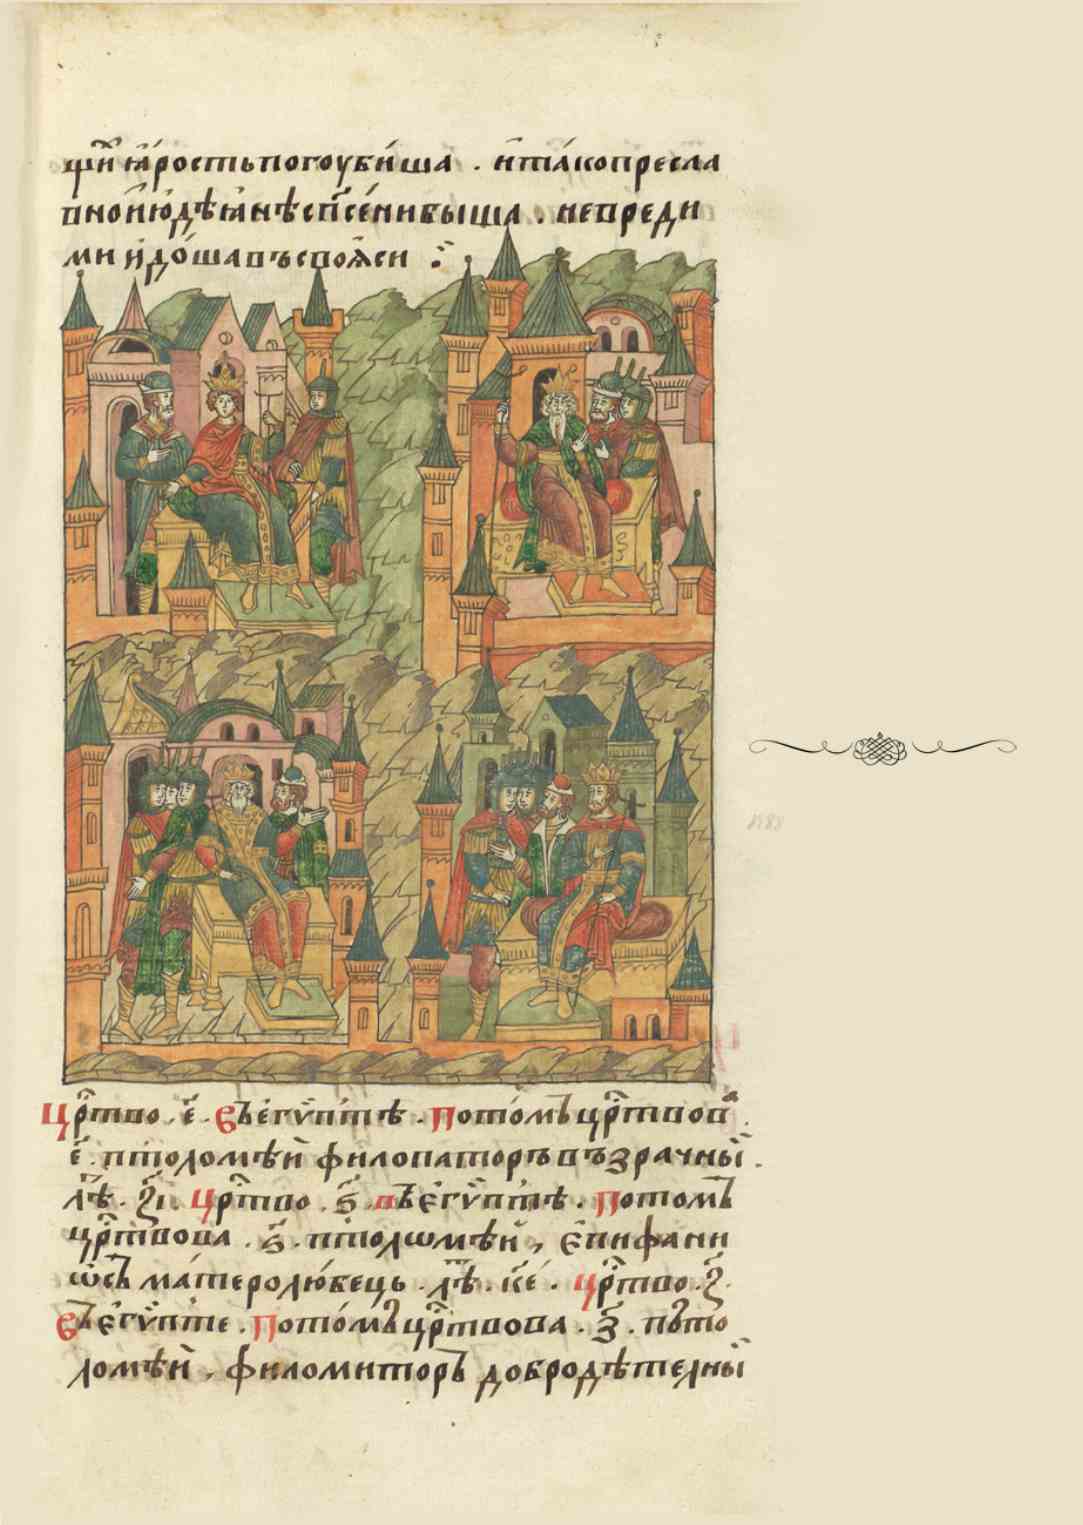 щеи ꙗ҆рость погоуби́ша . и҆ та́ко пресла
вно и҆ю҆дѣꙗ҆не сп҃се́ни быша . невреди
ми и҆ до́ша въ своѧ҆си :
Цр҃тво . е҃ . Въ е҆гѵ́птѣ . Пото́мъ цр҃твова .
е҃ . птоломѣ́и филопаторъ възрачныи .
лѣ . з҃і . Цр҃тво . ѕ҃ . въ е҆гѵ́птѣ . Потомъ
цр҃твова . ѕ҃ . птолѡмѣ́и , е҆пифани
ѡсъ ма́теролю́бець . лѣ . к҃е . Цр҃тво . з҃ .
Въ е҆гѵ́пте . Пото́мъ цр҃твова . з҃ . пъто
ломѣ́и , филомиторъ добродѣтелныи